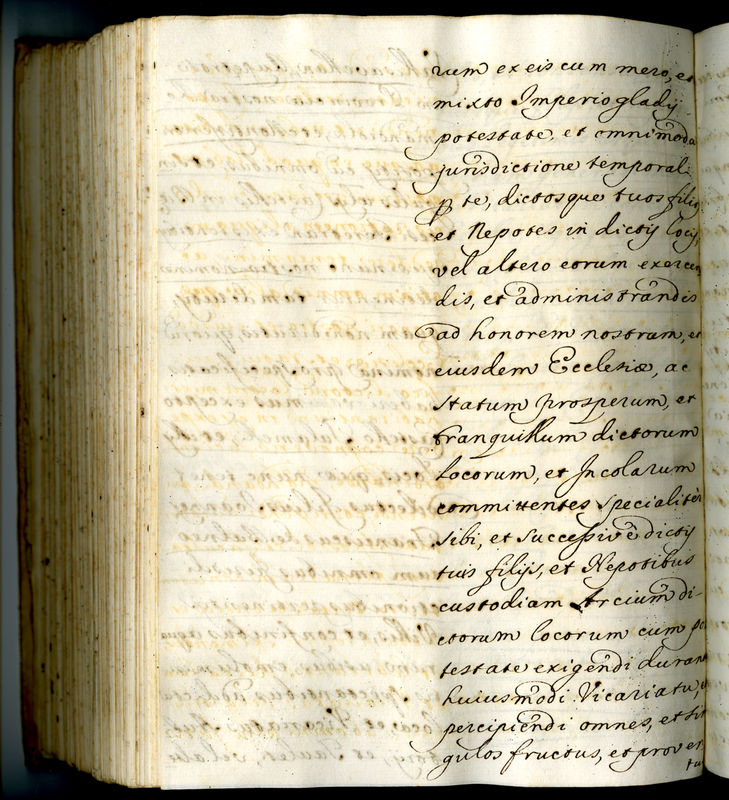 rum ex eis cum mero, et
mixto Imperio gladij
potestate, et omnimoda
jurisdictione temporali
p te, dictosque tuos filij
et Nepotes in dictij locij,
vel altero eorum exercen
dis, et administrandis
ad honorem nostrum, et
eiusdem Ecclesiæ, ac
statum prosperum, et
tranquillum dictorum
locorum, et Incolarum
committentes specialiter
sibi, et successivè dictij
tuis filijs, et Nepotibus
custodiam Arcium di-
ctorum locorum cum po
testate exigendi duran
huiusmodi Vicariatu, et
percipiendi omnes, et sin
gulos fructus, et proven
tu